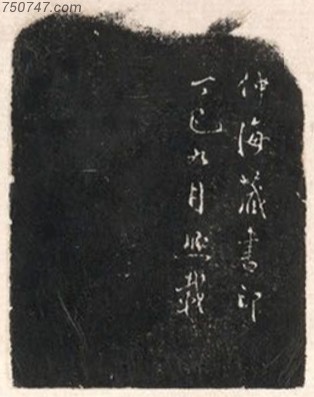 750747.com
仲海藏書印
丁巳九月熙載